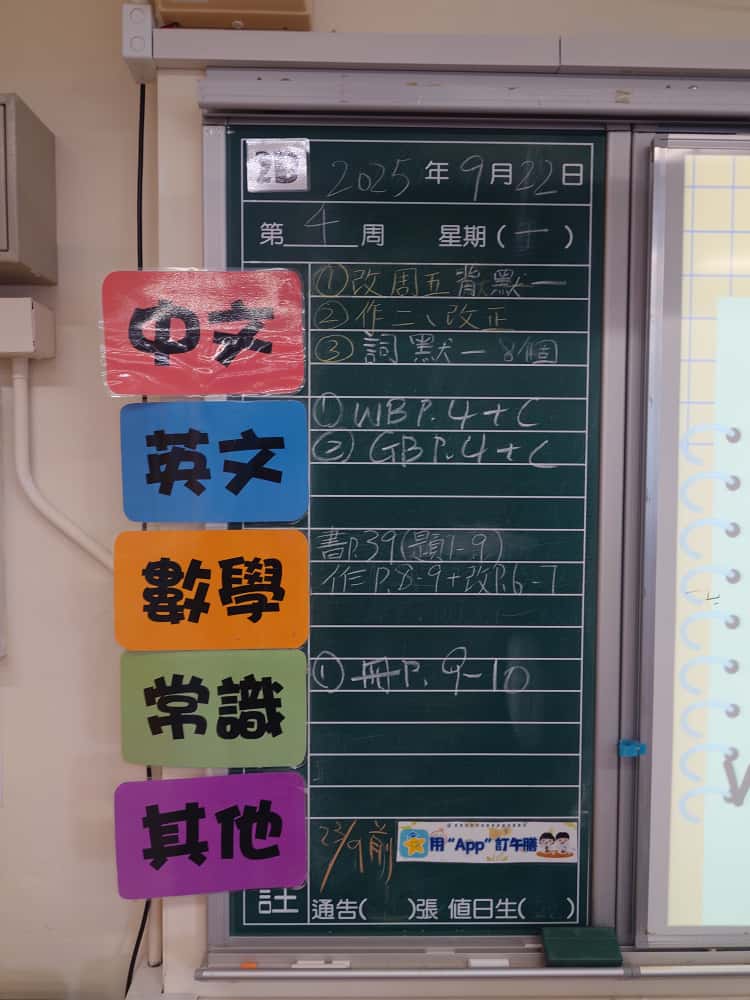 2B 2025年9月22日
第4周 星期(一)
中文
①改周五背默一
②作二、改正
③詞默一 8個
英文
①WB P.4+C
② GB P.4+C
數學
書P.39(題1-9)
作P.8-9+改P.6-7
常識
①冊P. 9-10
其他
23/9前
用“App”訂午膳
註
通告( )張 值日生( )